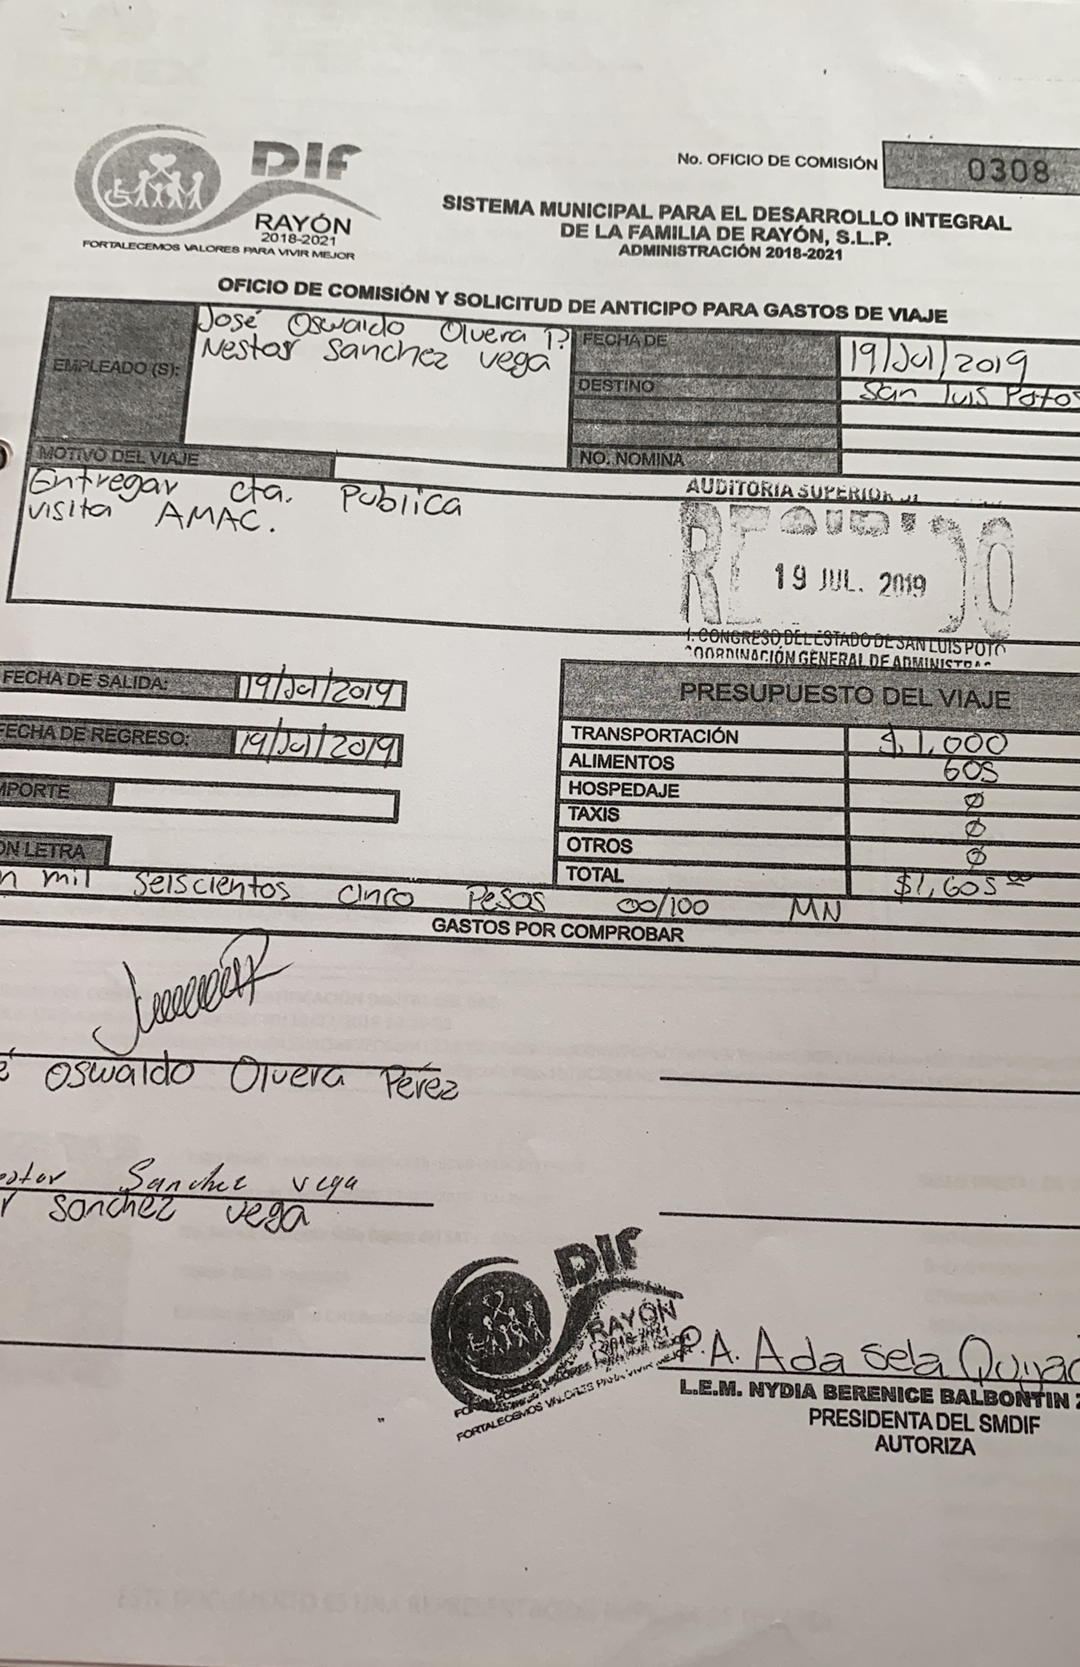 DIF
RAYÓN
2018-2021
FORTALECEMOS VALORES PARA VIVIR MEJOR
No. OFICIO DE COMISIÓN 0308
SISTEMA MUNICIPAL PARA EL DESARROLLO INTEGRAL
DE LA FAMILIA DE RAYÓN, S.L.P.
ADMINISTRACIÓN 2018-2021
OFICIO DE COMISIÓN Y SOLICITUD DE ANTICIPO PARA GASTOS DE VIAJE
EMPLEADO (S): José Oswaldo Olvera P.
Nestor Sanchez Vega
FECHA DE 19/Jul/2019
DESTINO San Luis Potos
NO. NOMINA
MOTIVO DEL VIAJE
Entregar cta. Publica
visita AMAC.
AUDITORIA SUPERIOR
RECIBIDO
19 JUL. 2019
H. CONGRESO DEL ESTADO DE SAN LUIS POTO
COORDINACIÓN GENERAL DE ADMINISTRA
FECHA DE SALIDA: 19/Jul/2019
FECHA DE REGRESO: 19/Jul/2019
MPORTE
ON LETRA
n mil seiscientos cinco Pesos 00/100 MN
PRESUPUESTO DEL VIAJE
TRANSPORTACIÓN $ 1,000
ALIMENTOS 605
HOSPEDAJE Ø
TAXIS Ø
OTROS Ø
TOTAL $1,605.00
GASTOS POR COMPROBAR
é Oswaldo Olvera Pérez
estor Sanchez Vega
r Sanchez Vega
DIF
RAYÓN
2018-2021
FORTALECEMOS VALORES PARA VIVIR MEJOR
P.A. Ada Sela
L.E.M. NYDIA BERENICE BALBONTIN
PRESIDENTA DEL SMDIF
AUTORIZA